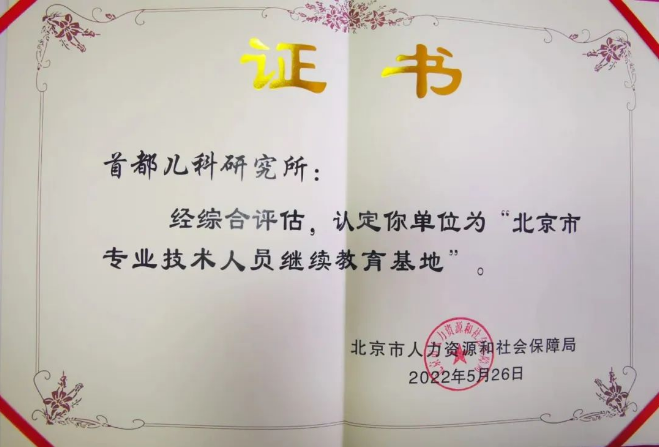 证书
首都儿科研究所：
经综合评估，认定你单位为“北京市
专业技术人员继续教育基地”。
北京市人力资源和社会保障局
2022年5月26日